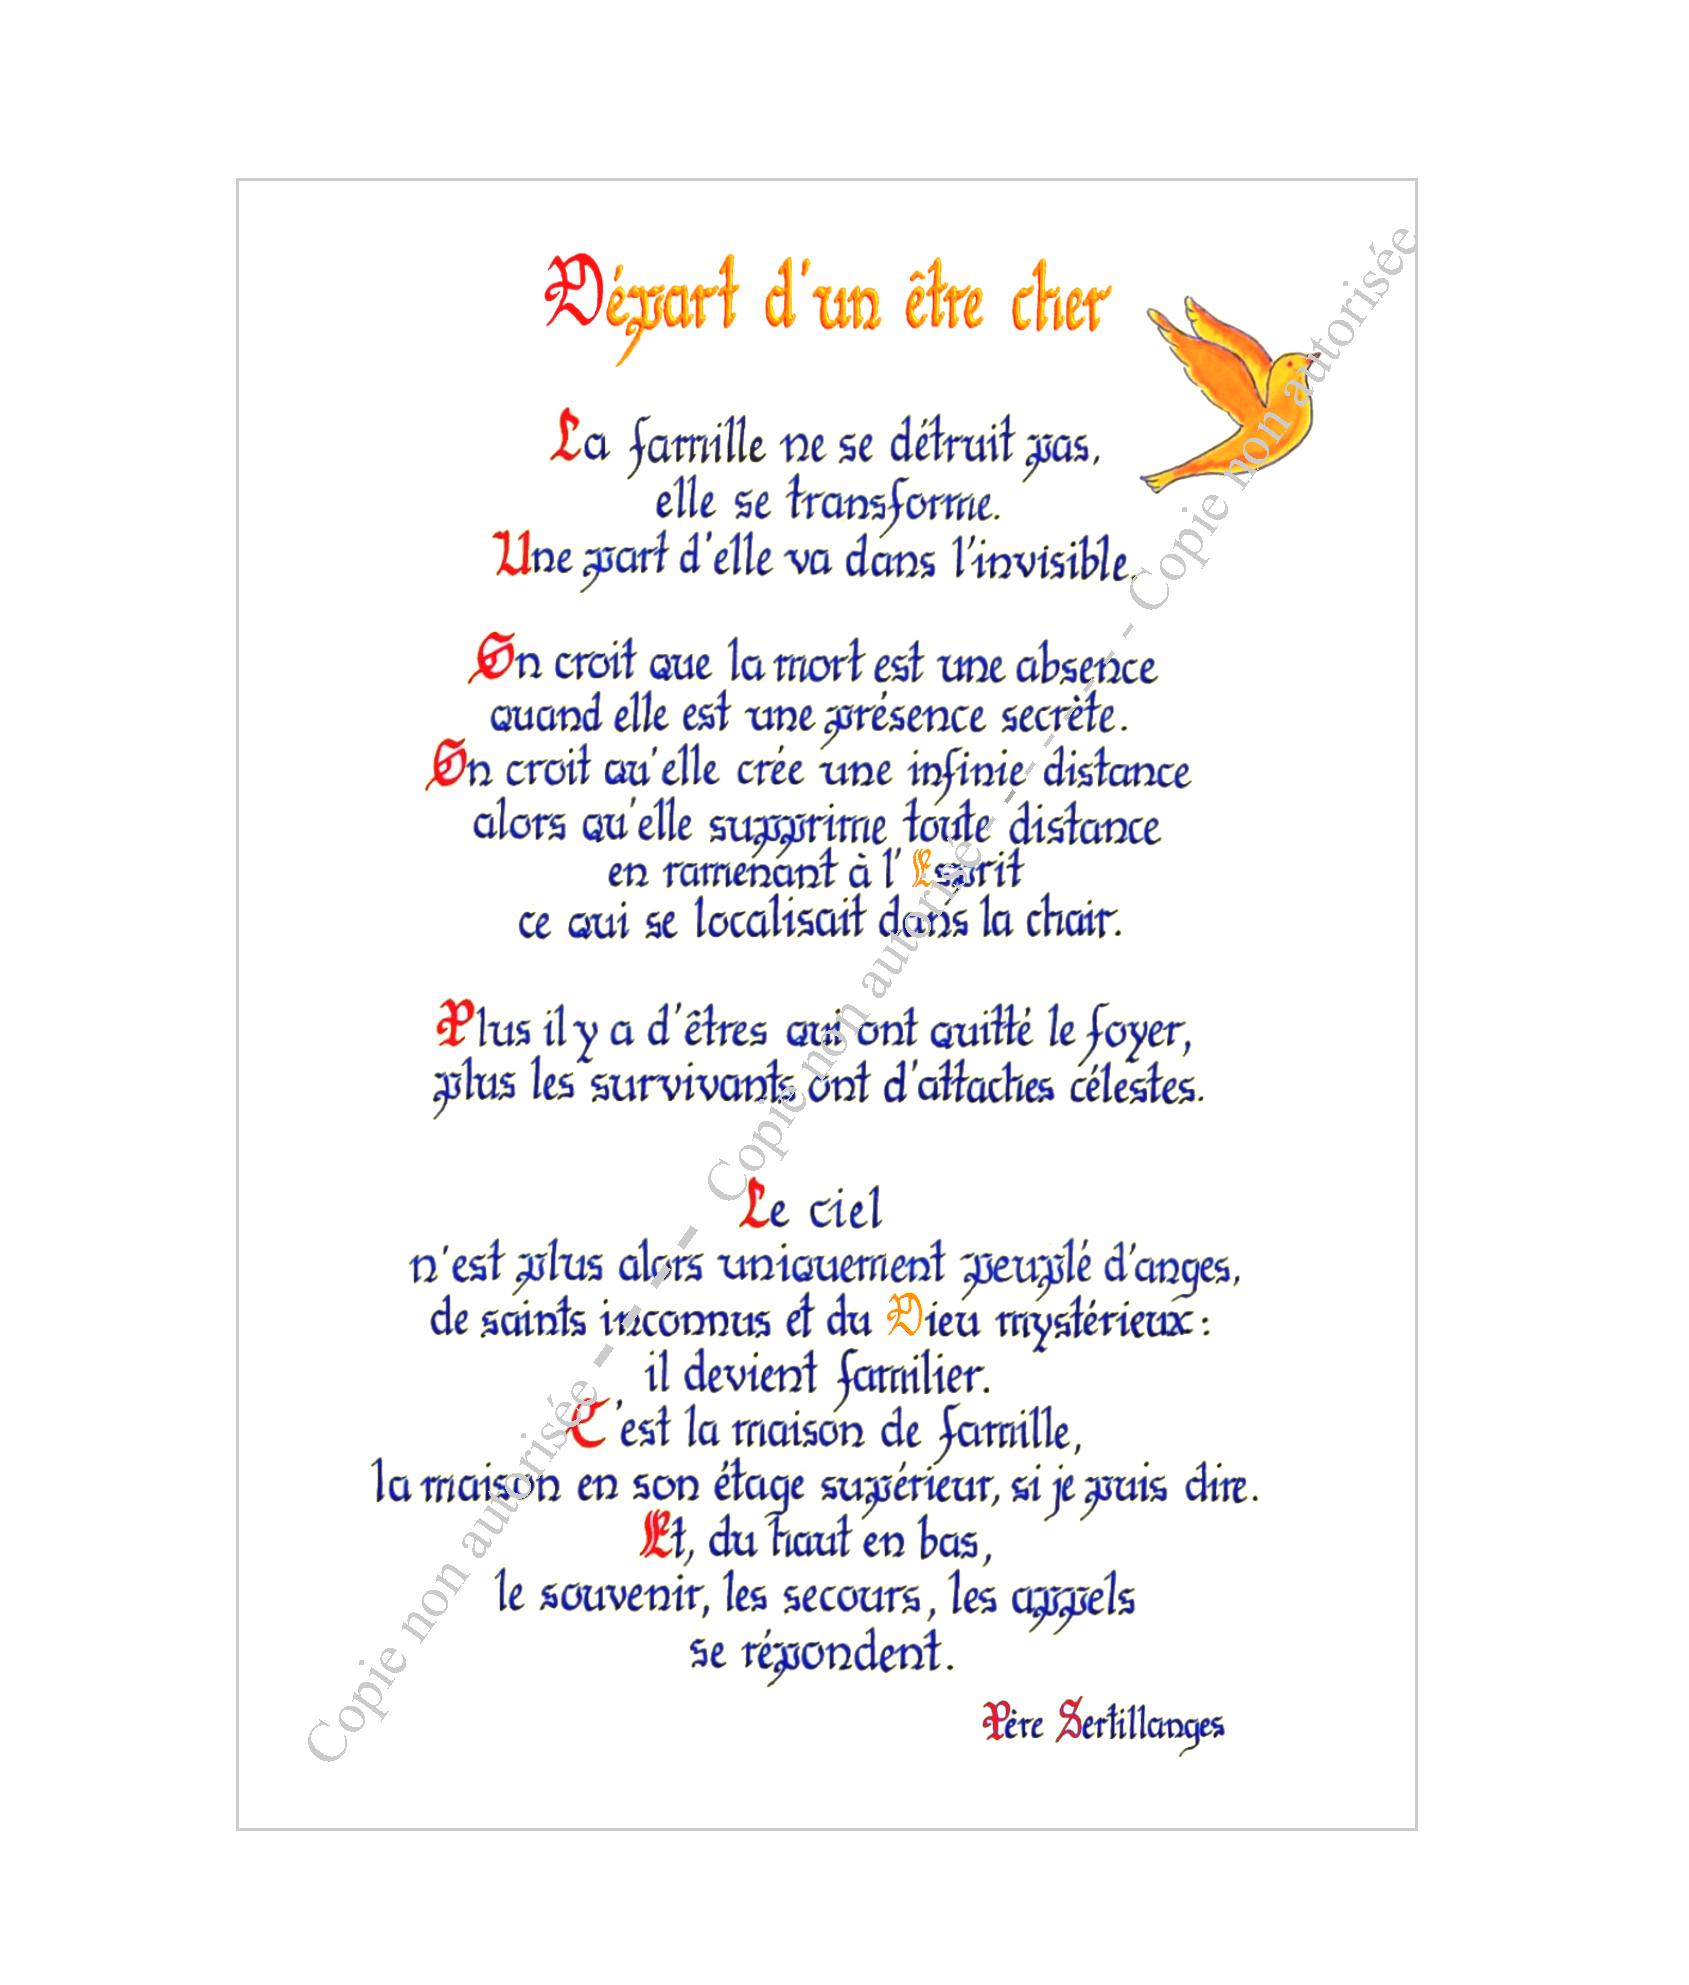 Départ d'un être cher
La famille ne se détruit pas,
elle se transforme.
Une part d'elle va dans l'invisible.
On croit que la mort est une absence
quand elle est une présence secrète.
On croit qu'elle crée une infinie distance
alors qu'elle supprime toute distance
en ramenant à l'Esprit
ce qui se localisait dans la chair.
Plus il y a d'êtres qui ont quitté le foyer,
plus les survivants ont d'attaches célestes.
Le ciel
n'est plus alors uniquement peuplé d'anges,
de saints inconnus et du Dieu mystérieux :
il devient familier.
C'est la maison de famille,
la maison en son étage supérieur, si je puis dire.
Et, du haut en bas,
le souvenir, les secours, les appels
se répondent.
Père Sertillanges
Copie non autorisée - - - - - Copie non autorisée - - - - - Copie non autorisée